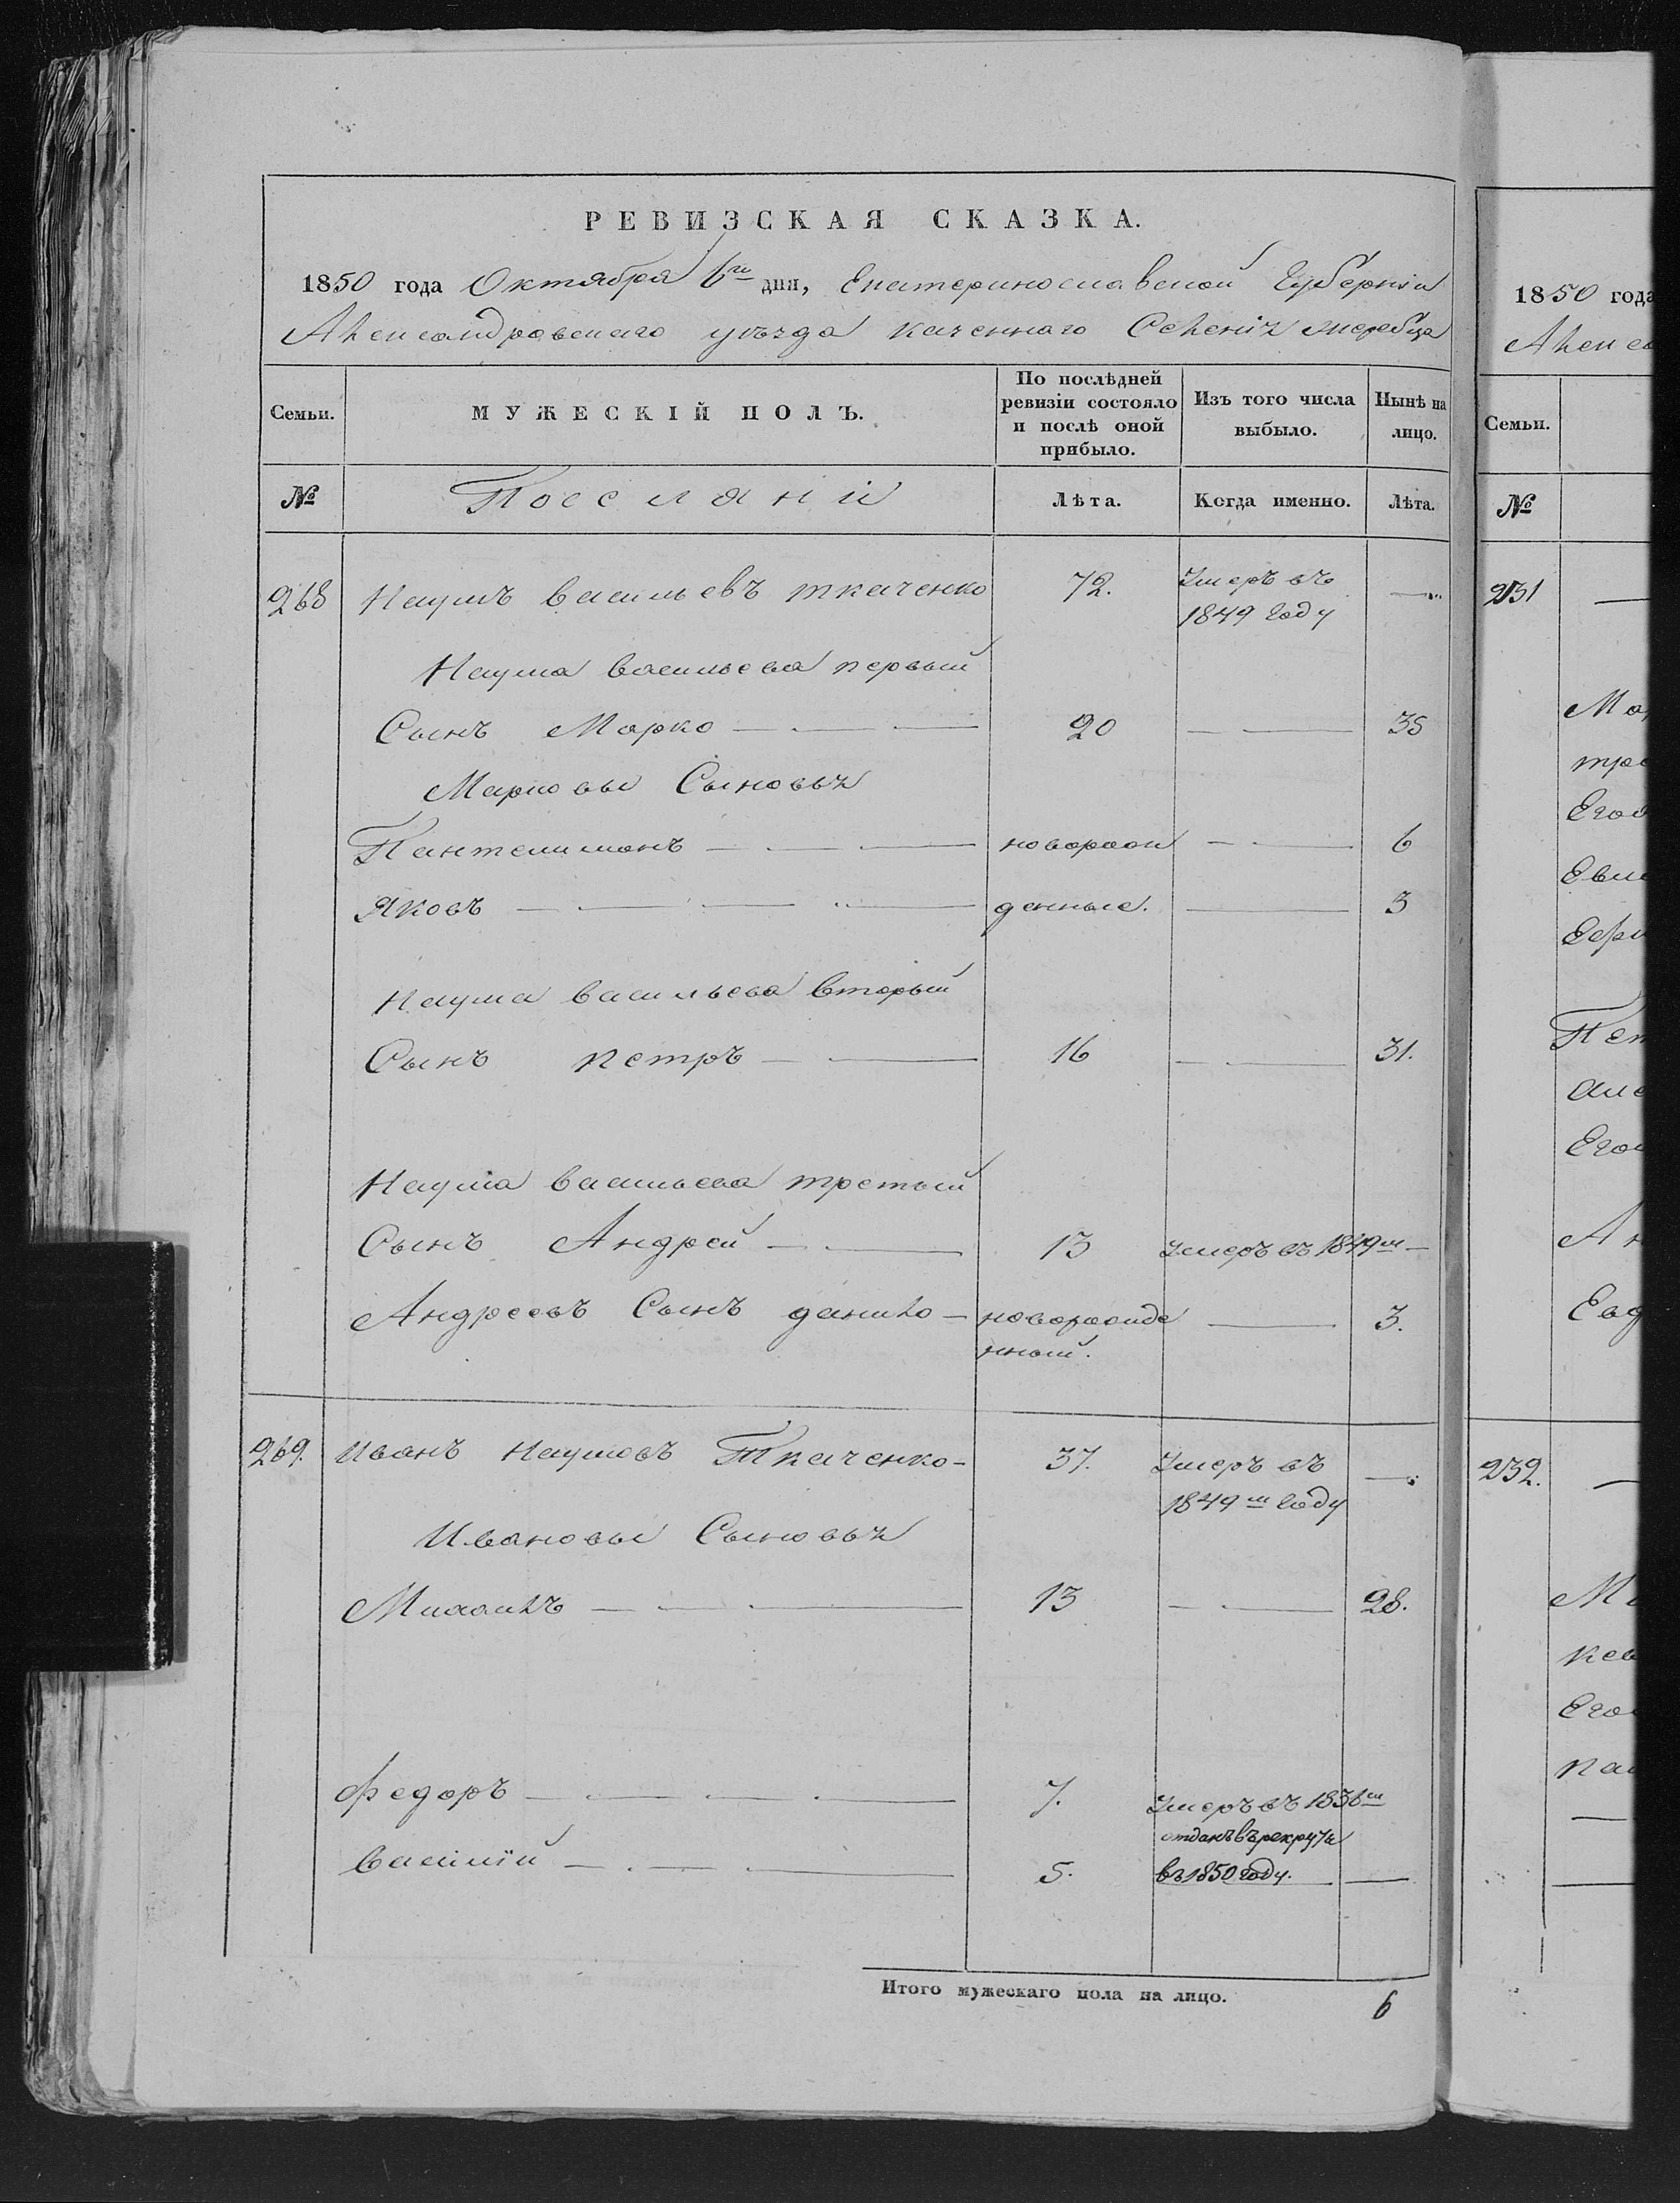 РЕВИЗСКАЯ СКАЗКА.
1850 года Октября 6го дня, Екатеринославской Губерніи
Александровскаго уѣзда казеннаго Селенія жеребца
Семьи. МУЖЕСКІЙ ПОЛЪ. По послѣдней ревизіи состояло и послѣ оной прибыло. Изъ того числа выбыло. Нынѣ на лицо.
№ Лѣта. Когда именно. Лѣта.
268 Наумъ васильевъ ткаченко 72. Умеръ въ —
1849 году
Наума васильева первый
Сынъ Марко — 20 — 35
Марковы Сыновья
Пантелимонъ — новорож — 6
Яковъ — денные. — 3
Наума васильева вторый
Сынъ петръ — 16 — 31.
Наума васильева третый
Сынъ Андрей — 13 умеръ въ 1849м —
Андреевъ Сынъ данило — новорожде — 3.
нный.
269. Иванъ Наумовъ Ткаченко — 37. Умеръ въ —
1849м году
Ивановы Сыновья
Михаилъ — 13 — 28.
Федоръ — 7. Умеръ въ 1836м
отданъ въ рекруты
василій — 5. въ 1850 году. —
Итого мужескаго пола на лицо. 6
1850 года
Семьи.
№
231
Его
Пет
232.